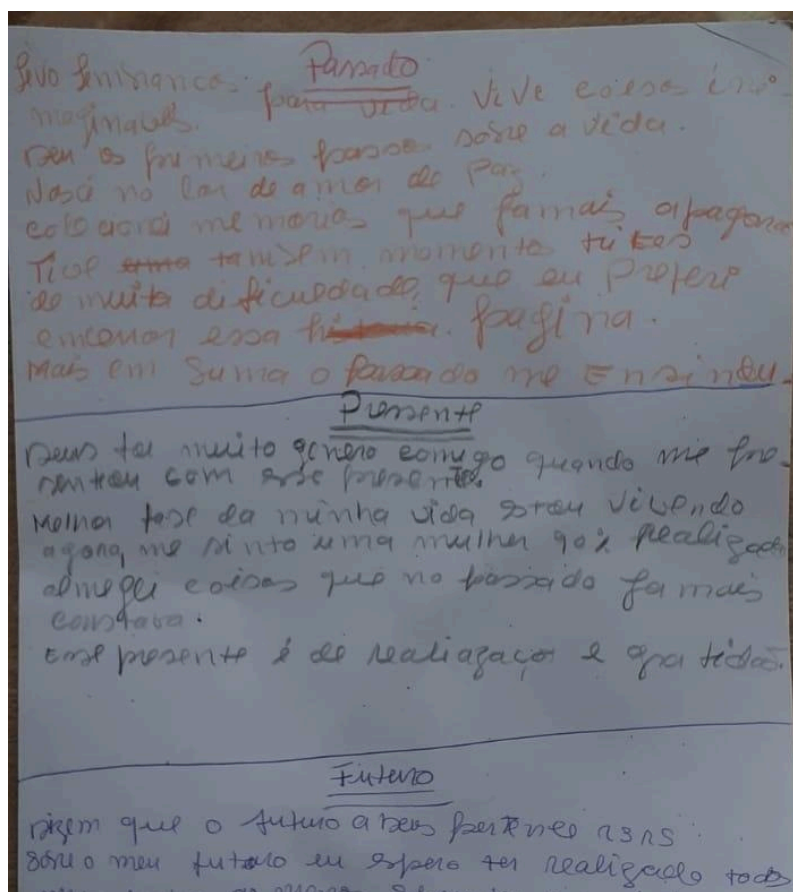 Passado
levo lembranças para vida. Vive coisas ini-
maginaveis.
Dei os primeiros passos sobre a vida.
Nasci no lar de amor de Paz.
memorias que jamais apagara
Tive tambem momento tristes
de muita dificuldade, que eu Preferi
encerrar essa historia. pagina.
Mais em Suma o passado me Ensinou.
Presente
Deus foi muito comigo quando me pre-
senteou com esse presente.
Melhor fase da minha vida estou vivendo
agora, me sinto uma mulher 90% realizada
almejei coisas que no passado jamais
Esse presente é de realiazaçoi e gratidão.
Futuro
Dizem que o futuro a Deus pertence rsrs
Sobre o meu futuro eu espero ter realizado todos